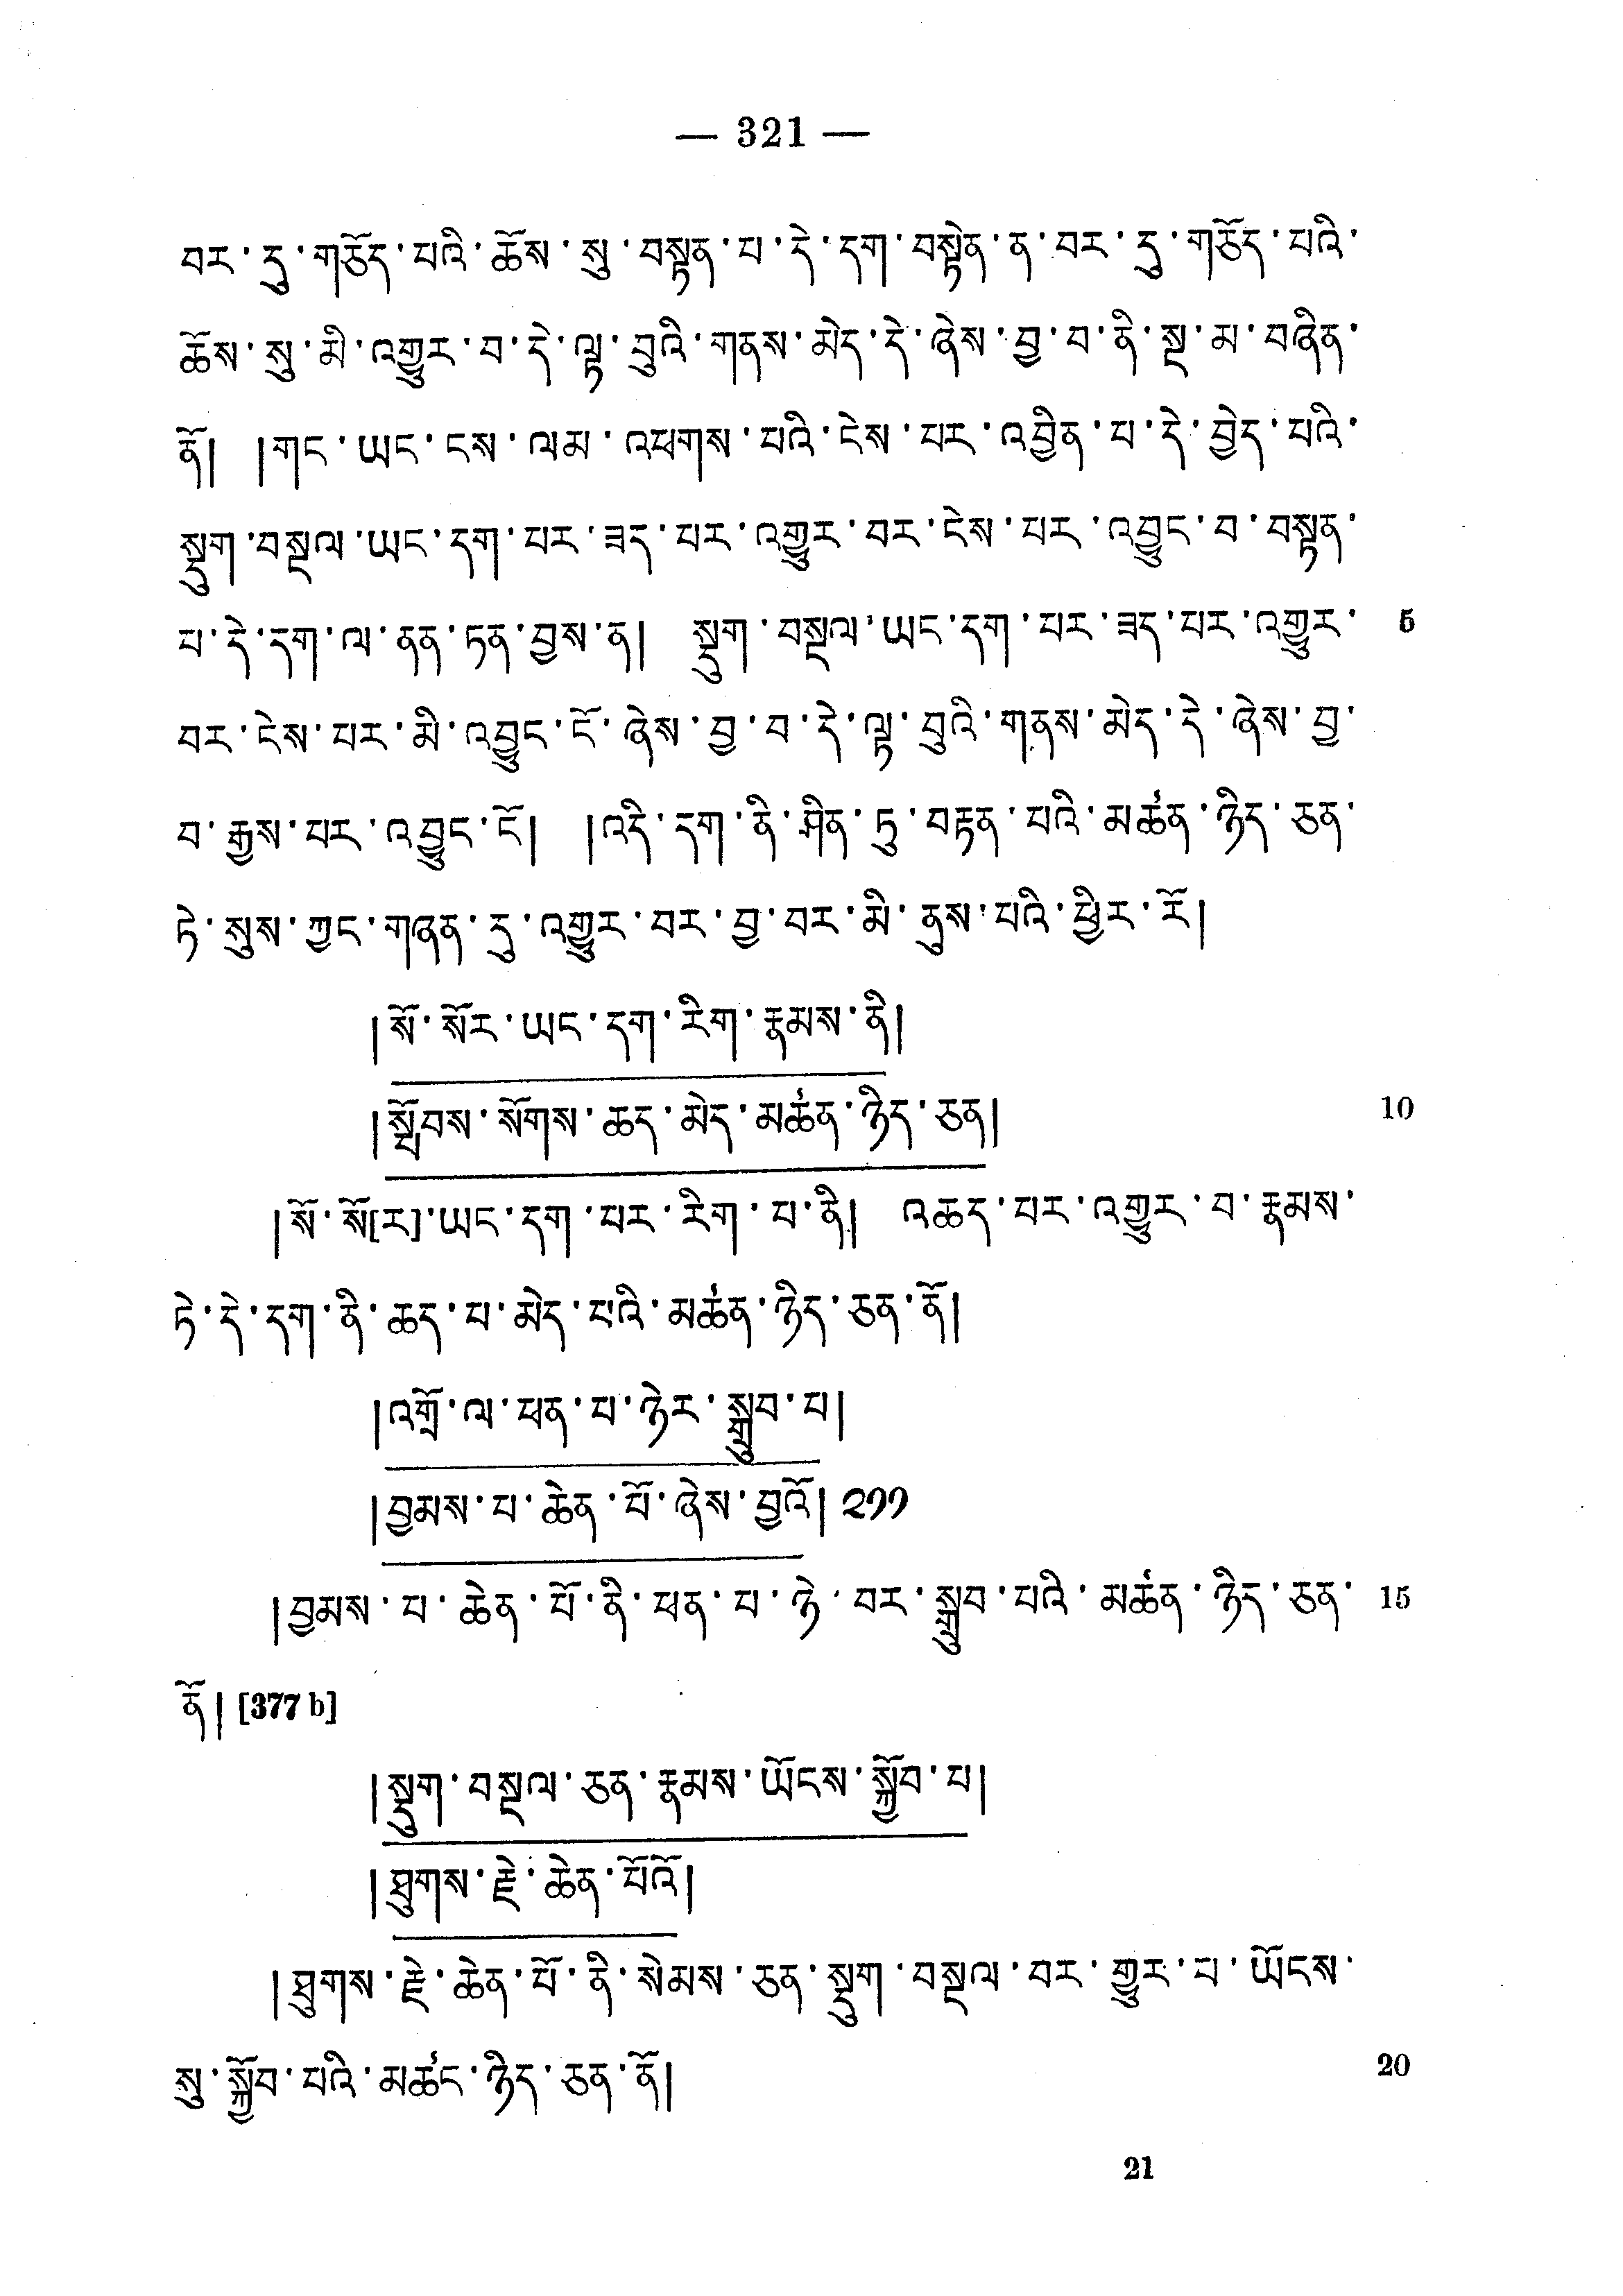 — 321 —
བར་དུ་གཅོད་པའི་ཆོས་སུ་བསྟན་པ་དེ་དག་བསྟེན་ན་བར་དུ་གཅོད་པའི་
ཆོས་སུ་མི་འགྱུར་བ་དེ་ལྟ་བུའི་གནས་མེད་དེ་ཞེས་བྱ་བ་ནི་སྔ་མ་བཞིན་
ནོ། །གང་ཡང་ངས་ལམ་འཕགས་པའི་ངེས་པར་འབྱིན་པ་དེ་བྱེད་པའི་
སྡུག་བསྔལ་ཡང་དག་པར་ཟད་པར་འགྱུར་བར་ངེས་པར་འབྱུང་བ་བསྟན་
པ་དེ་དག་ལ་ནན་ཏན་བྱས་ན། སྡུག་བསྔལ་ཡང་དག་པར་ཟད་པར་འགྱུར་ 5
བར་ངེས་པར་མི་འབྱུང་ངོ་ཞེས་བྱ་བ་དེ་ལྟ་བུའི་གནས་མེད་དེ་ཞེས་བྱ་
བ་རྒྱས་པར་འབྱུང་ངོ། །འདི་དག་ནི་ཤིན་ཏུ་བརྟན་པའི་མཚན་ཉིད་ཅན་
ཏེ་སུས་ཀྱང་གཞན་དུ་འགྱུར་བར་བྱ་བར་མི་ནུས་པའི་ཕྱིར་རོ།
།སོ་སོར་ཡང་དག་རིག་རྣམས་ནི།
།སྤོབས་སོགས་ཆད་མེད་མཚན་ཉིད་ཅན། 10
།སོ་སོ[ར]་ཡང་དག་པར་རིག་པ་ནི། འཆད་པར་འགྱུར་བ་རྣམས་
ཏེ་དེ་དག་ནི་ཆད་པ་མེད་པའི་མཚན་ཉིད་ཅན་ནོ།
།འགྲོ་ལ་ཕན་པ་ཉེར་སྒྲུབ་པ།
།བྱམས་པ་ཆེན་པོ་ཞེས་བྱའོ། ༢༡༡
།བྱམས་པ་ཆེན་པོ་ནི་ཕན་པ་ཉེ་བར་སྒྲུབ་པའི་མཚན་ཉིད་ཅན་ 15
ནོ། [377 b]
།སྡུག་བསྔལ་ཅན་རྣམས་ཡོངས་སྐྱོབ་པ།
།ཐུགས་རྗེ་ཆེན་པོའོ།
།ཐུགས་རྗེ་ཆེན་པོ་ནི་སེམས་ཅན་སྡུག་བསྔལ་བར་གྱུར་པ་ཡོངས་
སུ་སྐྱོབ་པའི་མཚང་ཉིད་ཅན་ནོ། 20
21